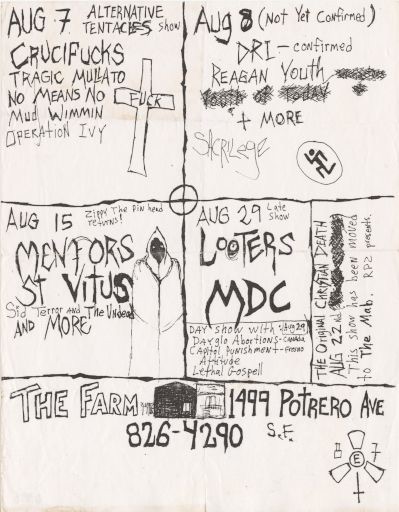 AUG 7 ALTERNATIVE
TENTACLES show
CRUCIFUCKS
TRAGIC MULLATO
NO MEANS NO
MUD WIMMIN
OPERATION IVY
FUCK
Aug 8 (Not Yet Confirmed)
DRI - confirmed
REAGAN YOUTH
+ MORE
SACRILEGE
AUG 15 Zippy The Pin head
returns!
MENTORS
ST VITUS
Sid Terror and The Undead
AND MORE
AUG 29 Late
Show
LOOTERS
MDC
DAY Show with Aug 29
Dayglo Abortions - CANADA
Capitol Punishment - Fresno
Attitude
Lethal Gospell
THE Original Christian Death
AUG 22nd
This show has been moved
to The Mab. RPZ presents.
THE FARM 1499 POTRERO AVE
826-4290 S.F.
8 E 7